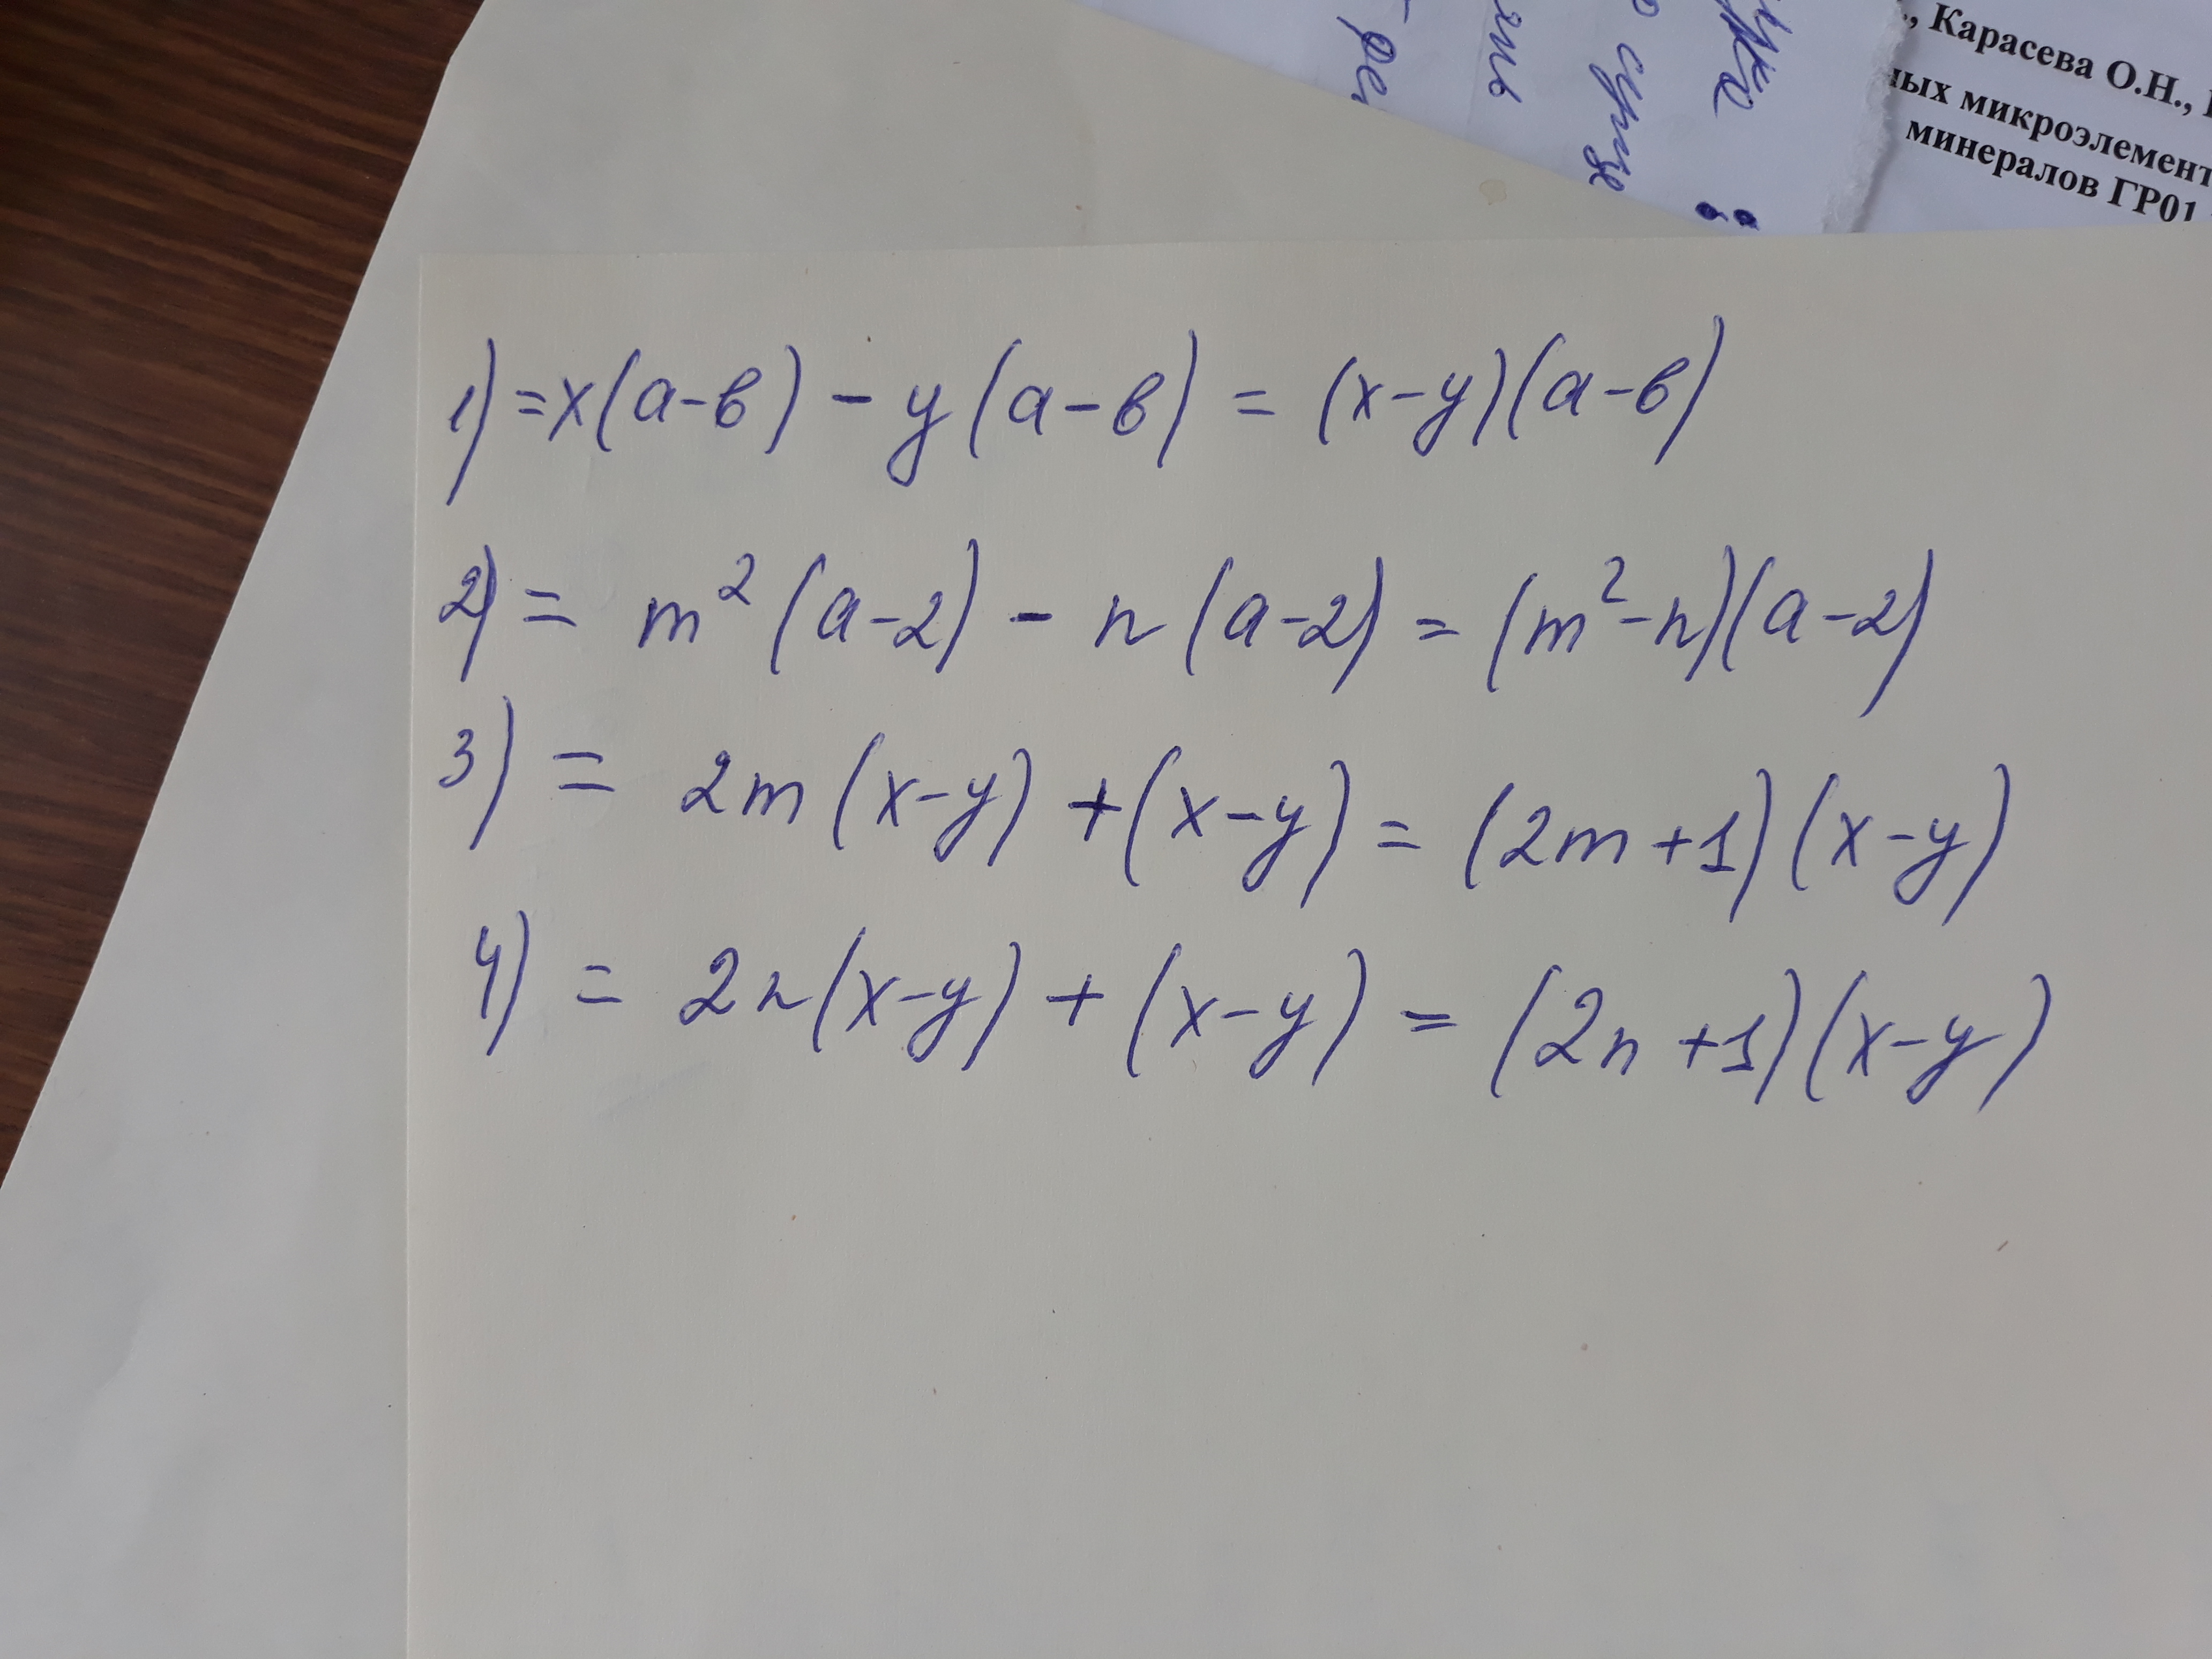 ., Карасева О.Н.,
ных микроэлемент
минералов ГР01
1) = x(a-в) - y(a-в) = (x-y)(a-в)
2) = m²(a-2) - n(a-2) = (m²-n)(a-2)
3) = 2m(x-y) + (x-y) = (2m+1)(x-y)
4) = 2n(x-y) + (x-y) = (2n+1)(x-y)